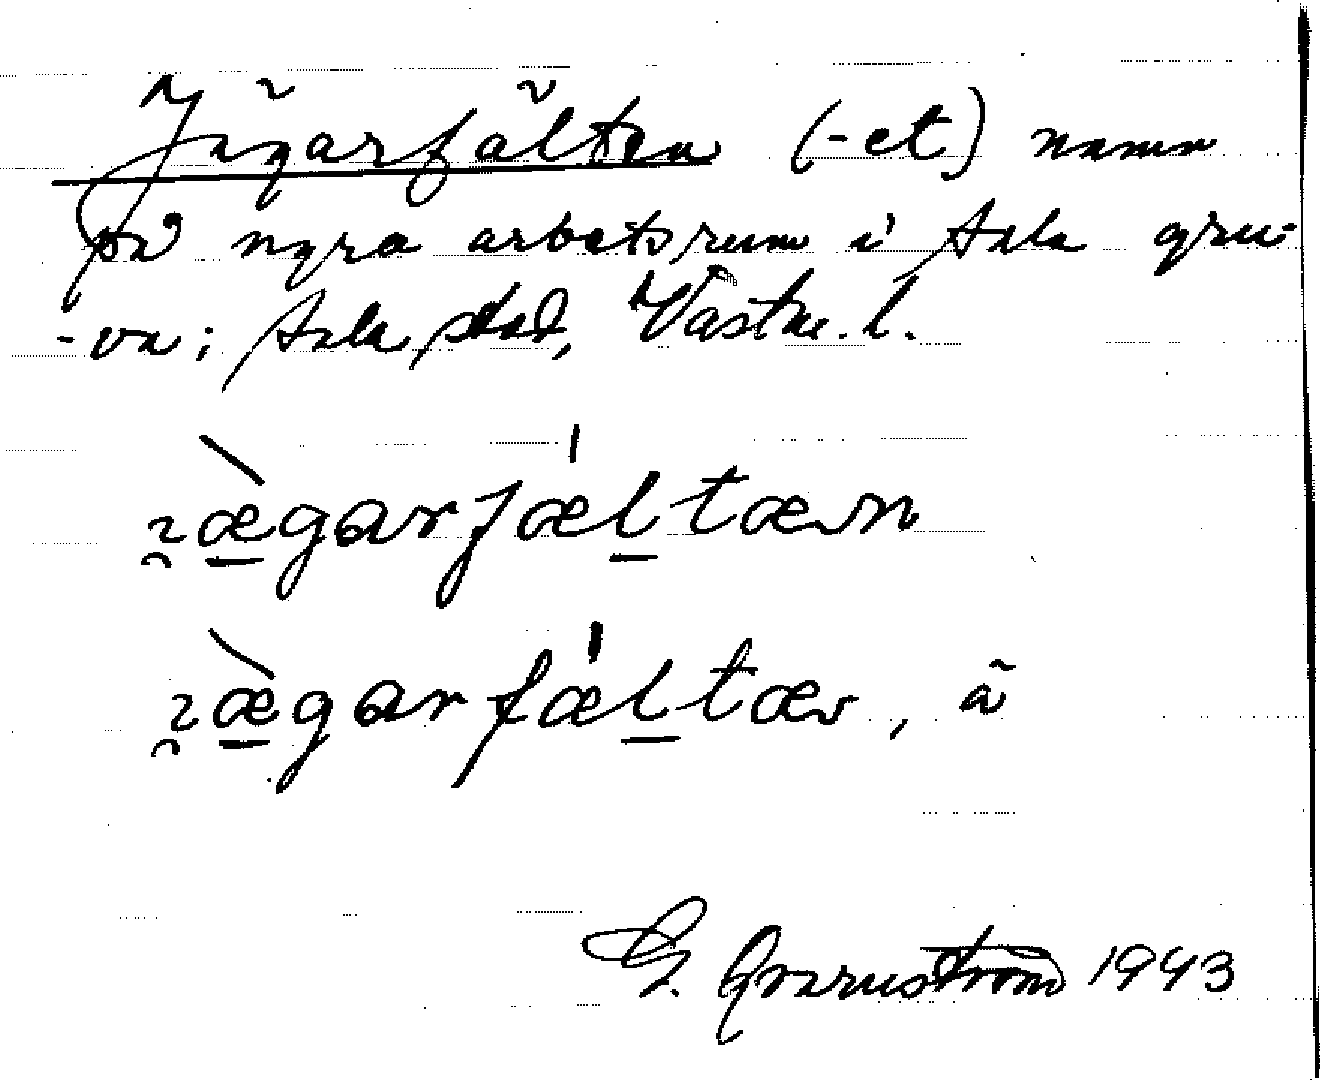 Jägarfälten (-et) namn
på ngra arbetsrum i Sala gru-
-va; Sala stad, Västm. l.
ɿæ̀garfǽltæn
ɿæ̀garfǽltæ, ã
G. Qvarnström 1943